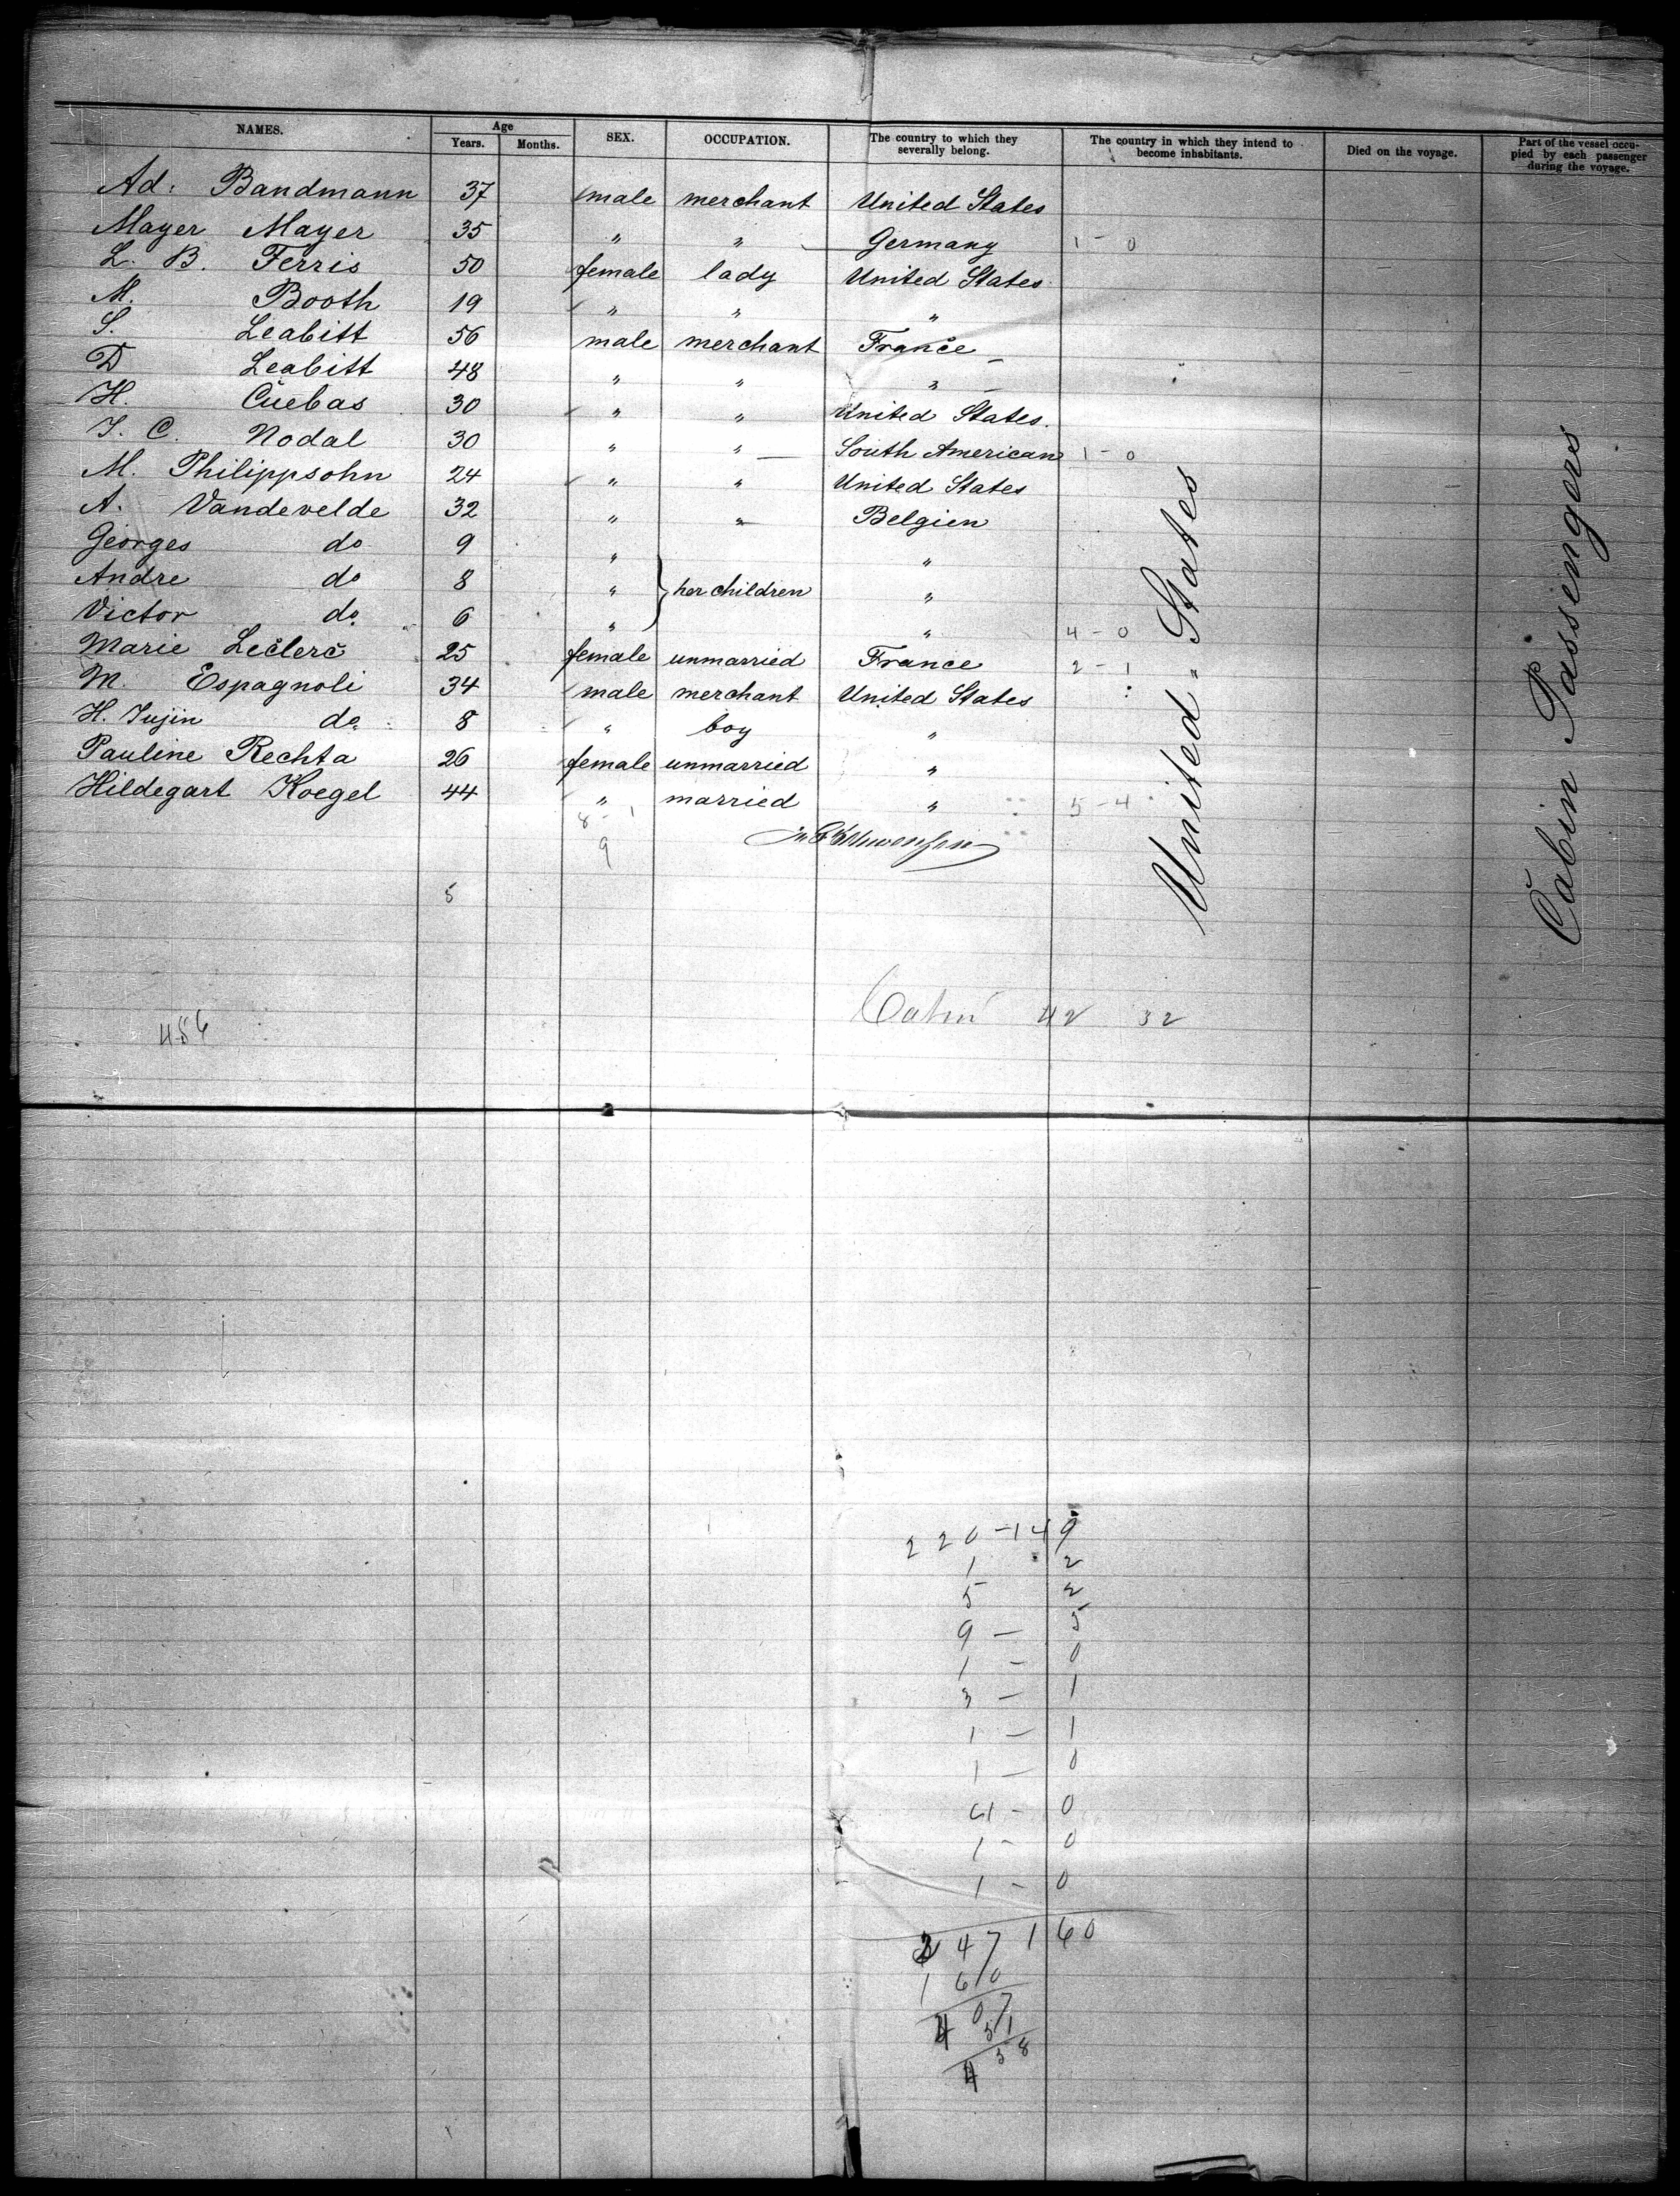 NAMES. Age SEX. OCCUPATION. The country to which they severally belong. The country in which they intend to become inhabitants. Died on the voyage. Part of the vessel occu-pied by each passenger during the voyage.
Years. Months.
Ad: Bandmann 37 male merchant United States
Mayer Mayer 35 " " Germany 1 - 0
L. B. Ferris 50 female lady United States
M. Booth 19 " " "
S. Leabitt 56 male merchant France
D Leabitt 48 " " "
H. Cuebas 30 " " United States.
J. C. Nodal 30 " " South American 1 - 0
M. Philippsohn 24 " " United States
A. Vandevelde 32 " " Belgien
Georges do 9 " "
Andre do 8 " her children "
Victor do. 6 " " 4 - 0
Marie Leclerc 25 female unmarried France 2 - 1
M. Espagnoli 34 male merchant United States
H. Jujin do. 8 " boy "
Pauline Rechta 26 female unmarried "
Hildegart Koegel 44 " married " 5 - 4
8 - 1
9
5
United States
Cabin Passengers
Cabin 42 32
456
220 - 149
1 2
5 2
9 - 5
1 - 0
3 - 1
1 - 1
1 - 0
4 - 0
1 - 0
1 - 0
247 160
160
407
31
438